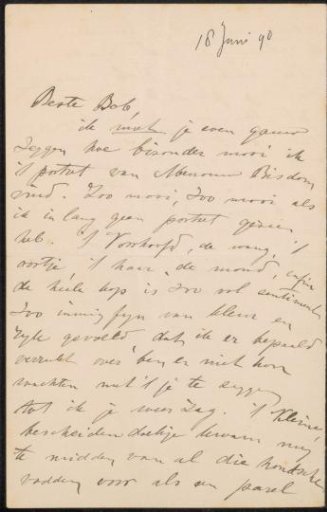 18 Juni 90
Beste Bob,
ik moet je even gauw
zeggen hoe bizonder mooi ik
't portret van Mevrouw Bisdom
vind. Zoo mooi, zoo mooi als
ik in lang geen portret gezien
heb. 't Voorhoofd, de wang, 't
oortje, 't haar, de mond, enfin
de heele kop is zoo vol sentiment
zoo innig fijn van kleur en
gevoeld, dat ik er bepaald
verrukt over ben en niet kon
wachten met 't je te zeggen
tot ik je weer zag. 't Kleine
bescheiden doekje kwam mij
te midden van al die
vodden voor als een parel